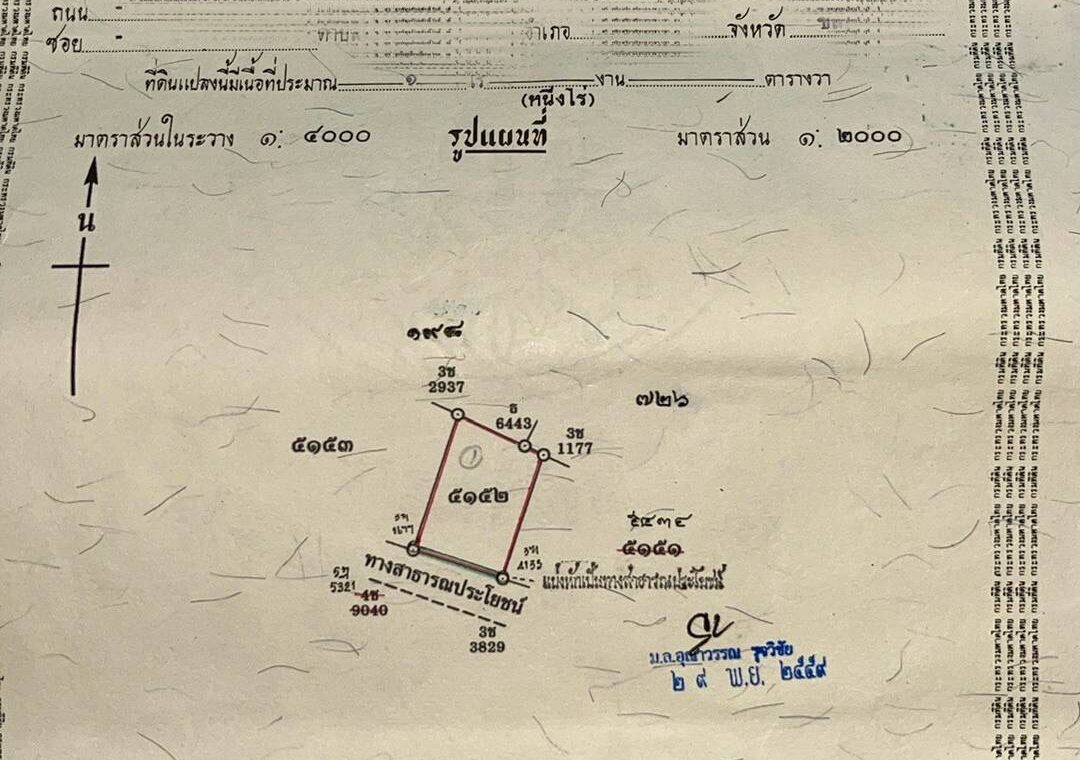 ถนน -
ซอย - ตำบล อำเภอ จังหวัด
ที่ดินแปลงนี้มีเนื้อที่ประมาณ ๑ ไร่ - งาน - ตารางวา
(หนึ่งไร่)
มาตราส่วนในระวาง ๑: ๔๐๐๐ รูปแผนที่ มาตราส่วน ๑: ๒๐๐๐
น
๑๙๘
3ช
2937
๗๒๖
ธ
6443
3ช
1177
๕๑๕๓
1
๕๑๕๒
๕๔๓๔
๕๑๕๑
4155
แบ่งหักเป็นทางสาธารณประโยชน์
ทางสาธารณประโยชน์
5321
4ช
9040
3ช
3829
ม.ล.อุณาวรรณ
๒๙ พ.ย. ๒๕๕๙
กรมที่ดิน กระทรวงมหาดไทย